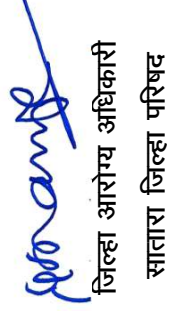 जिल्हा आरोग्य अधिकारी
सातारा जिल्हा परिषद